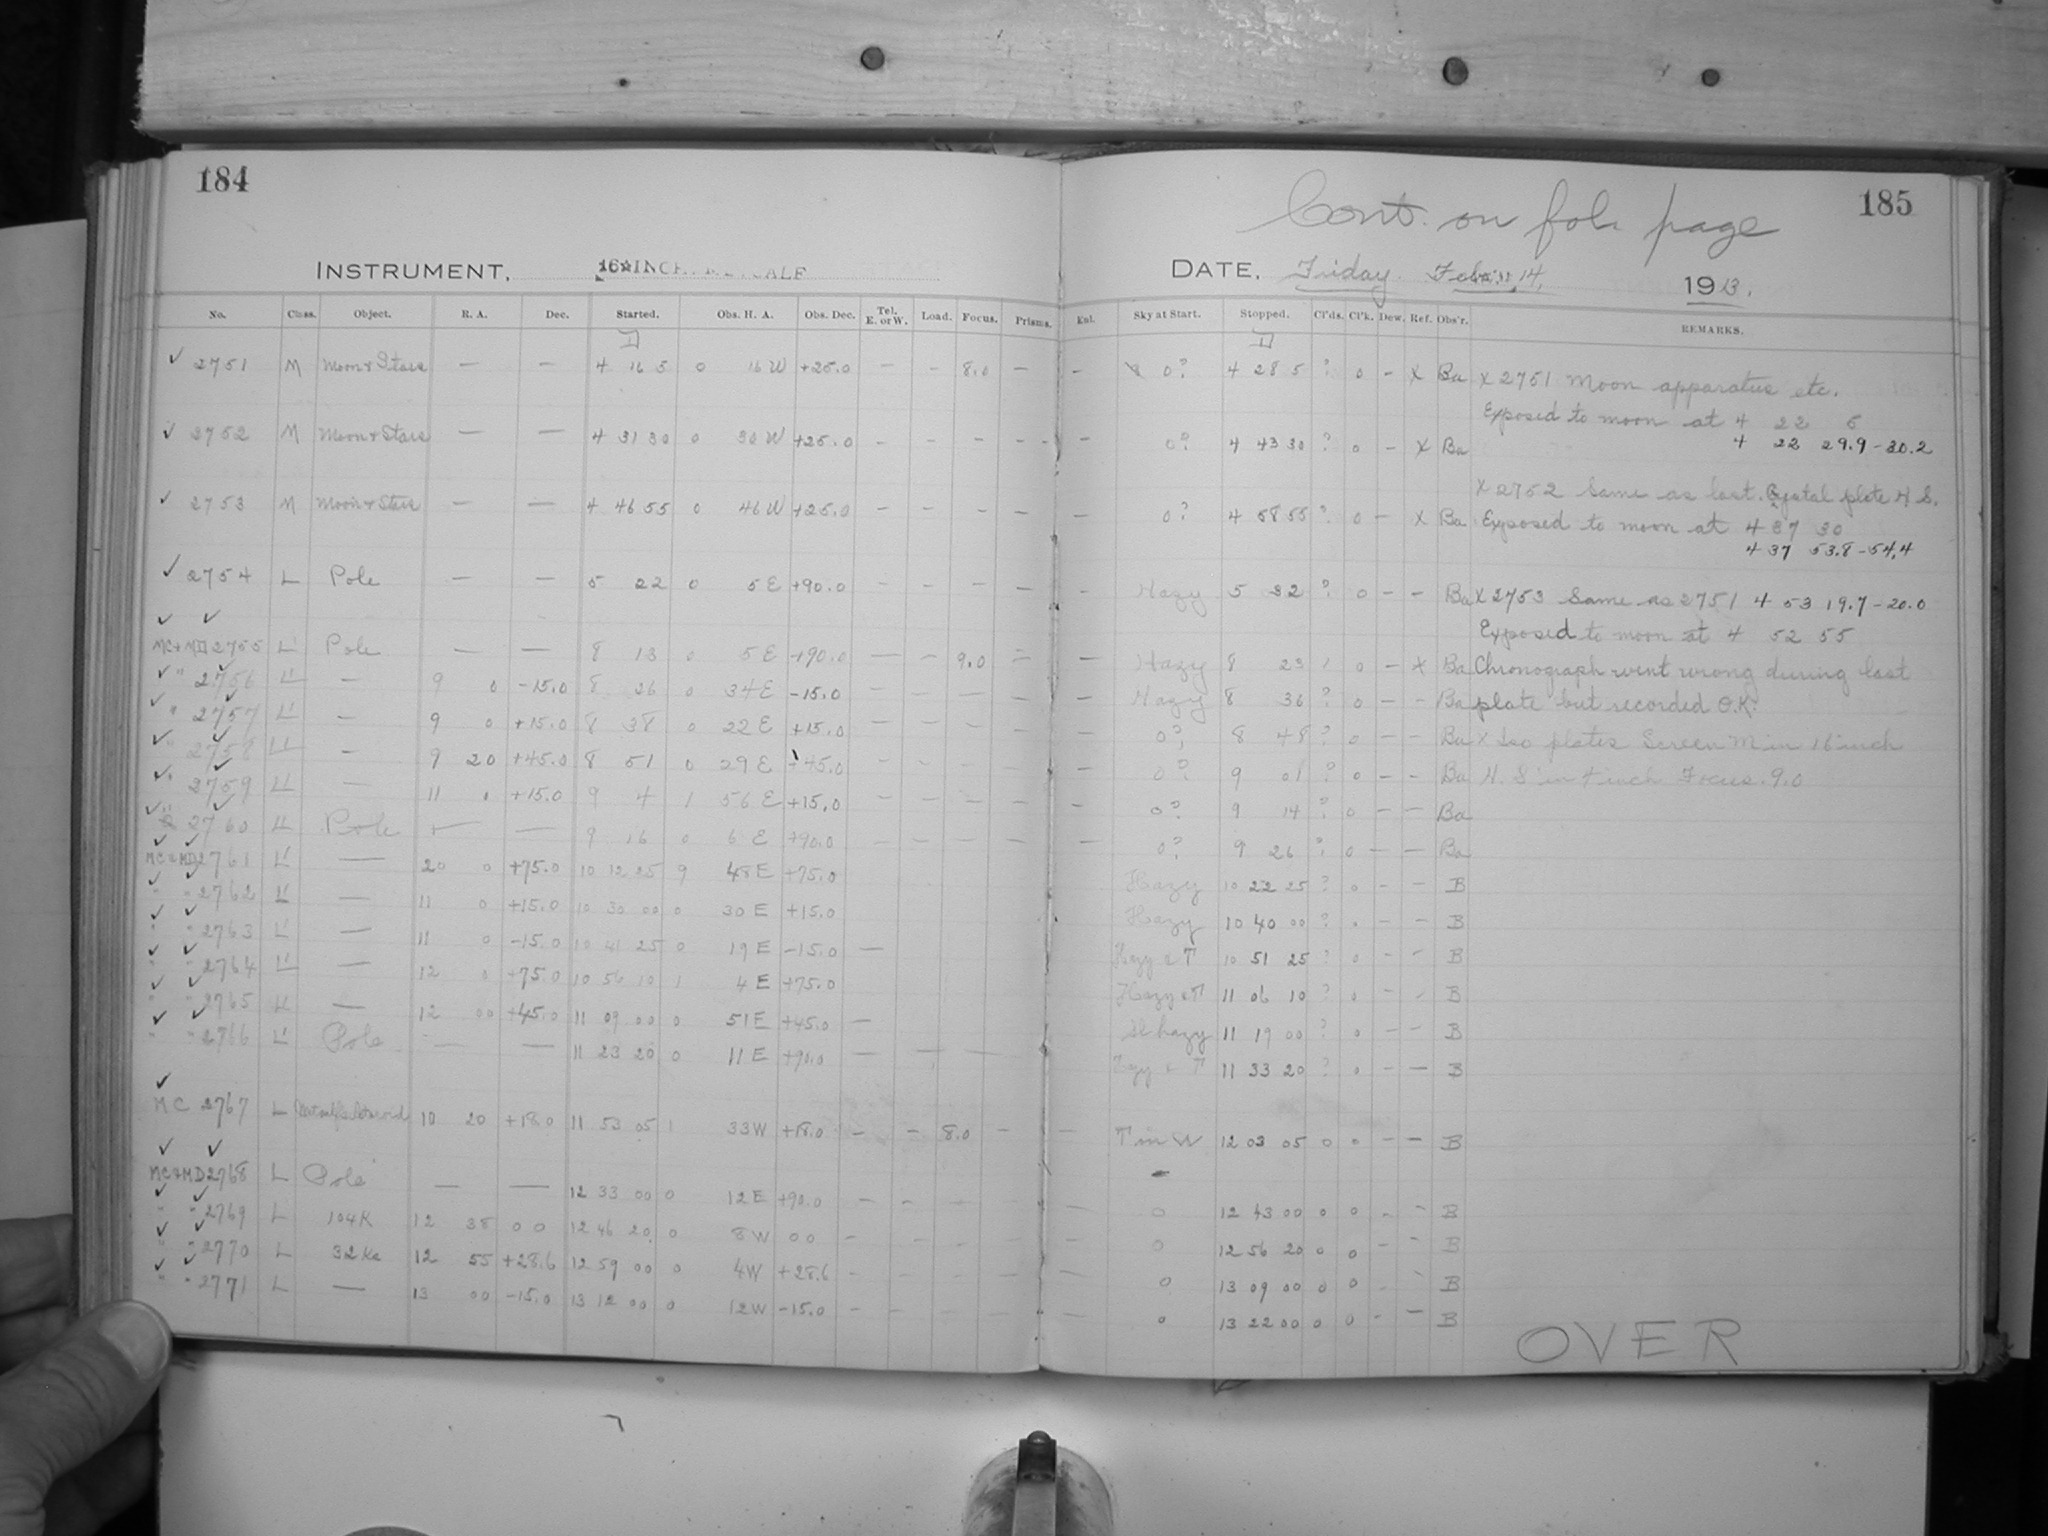 184
INSTRUMENT, 16 INCH METCALF
No. Class. Object. R. A. Dec. Started. Obs. H. A. Obs. Dec. Tel. E. or W. Load. Focus. Prisms.
2751 M Moon & Stars — — 4 16 5 0 16 W +25.0 — - 8.0 —
2752 M Moon & Stars — — 4 31 30 0 30 W +25.0 - - - - -
2753 M Moon & Stars — — 4 46 55 0 46 W +25.0 - - - -
2754 L Pole — — 5 22 0 5 E +90.0 - - - -
MC + MD 2755 L' Pole — — 8 13 0 5 E +90.0 — - 9.0 -
" 2756 L' — 9 0 -15.0 8 26 0 34 E -15.0 — — — —
" 2757 L' — 9 0 +15.0 8 38 0 22 E +15.0 — — — —
" 2758 L' — 9 20 +45.0 8 51 0 29 E +45.0 - - - -
" 2759 L' — 11 0 +15.0 9 4 1 56 E +15.0 — — — —
2760 L' Pole — — 9 16 0 6 E +90.0 - - - -
MC + MD 2761 L' — 20 0 +75.0 10 12 25 9 48 E +75.0
" " 2762 L' — 11 0 +15.0 10 30 00 0 30 E +15.0
" " 2763 L' — 11 0 -15.0 10 41 25 0 19 E -15.0 —
" " 2764 L' — 12 0 +75.0 10 56 10 1 4 E +75.0
" " 2765 L' — 12 00 +45.0 11 09 00 0 51 E +45.0 —
" " 2766 L' Pole — — 11 23 20 0 11 E +90.0 — — —
MC 2767 L Metcalf's Asteroid 10 20 +18.0 11 53 05 1 33 W +18.0 - - 8.0 -
MC + MD 2768 L Pole — — 12 33 00 0 12 E +90.0 - - - -
" " 2769 L 104K 12 38 0 0 12 46 20 0 8 W 0 0 - - - -
" " 2770 L 32 Ka 12 55 +28.6 12 59 00 0 4 W +28.6 - - - -
" " 2771 L — 13 00 -15.0 13 12 00 0 12 W -15.0 - - - -
185
Cont. on fol. page
DATE, Friday. Feb. 14, 1913.
Kal. Sky at Start. Stopped. Cl'ds. Cl'k. Dew. Ref. Obs'r. REMARKS.
- 0? 4 28 5 ? 0 - X Ba X 2751 Moon apparatus etc.
Exposed to moon at 4 22 5
- 0? 4 43 30 ? 0 - X Ba 4 22 29.9 - 30.2
X 2752 Same as last. Crystal plate H. S.
- 0? 4 58 55 ? 0 - X Ba Exposed to moon at 4 37 30
4 37 53.8 - 54.4
- Hazy 5 32 ? 0 - - Ba X 2753 Same as 2751 4 53 19.7 - 20.0
Exposed to moon at 4 52 55
— Hazy 8 23 ? 0 - X Ba Chronograph went wrong during last
— Hazy 8 36 ? 0 - - Ba plate but recorded O.K.
— 0? 8 48 ? 0 - - Ba X Iso plates Screen M. in 16 inch
— 0? 9 01 ? 0 - - Ba H. S in inch Focus. 9.0
— 0? 9 14 ? 0 - - Ba
— 0? 9 26 ? 0 - - Ba
Hazy 10 22 25 ? 0 - - B
Hazy 10 40 00 ? 0 - - B
Hazy & T 10 51 25 ? 0 - - B
Hazy & T 11 06 10 ? 0 - - B
Sl hazy 11 19 00 ? 0 - - B
Hazy & T 11 33 20 ? 0 - - B
— T in W 12 03 05 0 0 - - B
— 0 12 43 00 0 0 - - B
— 0 12 56 20 0 0 - - B
— 0 13 09 00 0 0 - - B
— 0 13 22 00 0 0 - - B
OVER